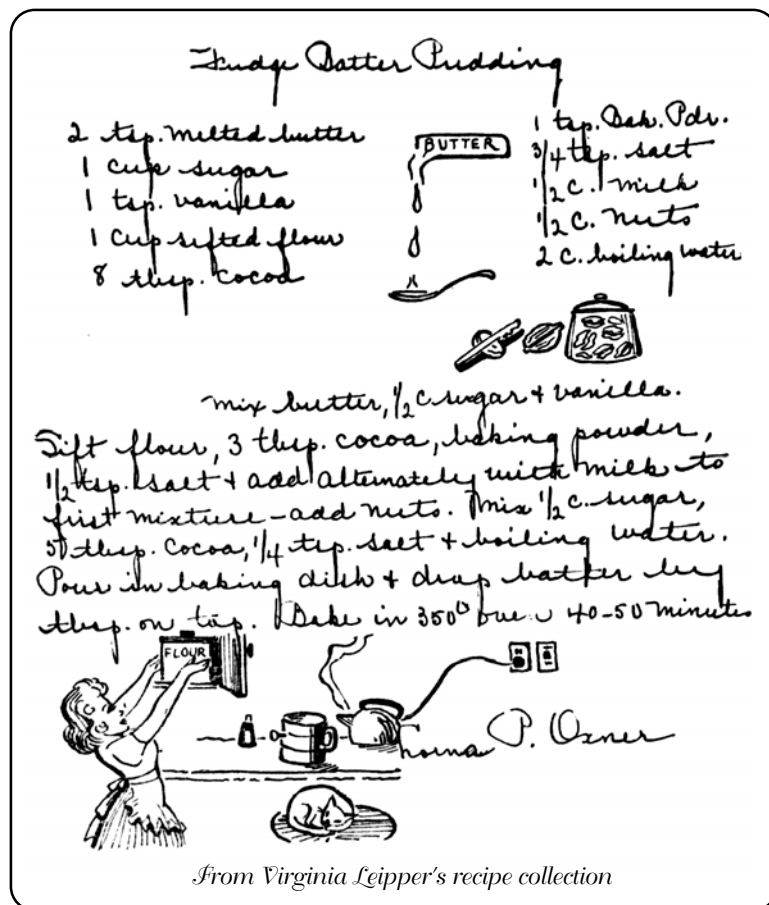 Fudge Batter Pudding
2 tsp. melted butter
1 cup sugar
1 tsp. vanilla
1 cup sifted flour
8 tbsp. cocoa
BUTTER
1 tsp. Bak. Pdr.
3/4 tsp. salt
1/2 c. milk
1/2 c. nuts
2 c. boiling water
Mix butter, 1/2 c sugar & vanilla.
Sift flour, 3 tbsp. cocoa, baking powder,
1/2 tsp. salt & add alternately with milk to
first mixture - add nuts. Mix 1/2 c. sugar,
5 tbsp. cocoa, 1/4 tsp. salt & boiling water.
Pour in baking dish & drop batter by
tbsp. on top. Bake in 350° 40-50 minutes
FLOUR
P. Oxner
From Virginia Leipper's recipe collection